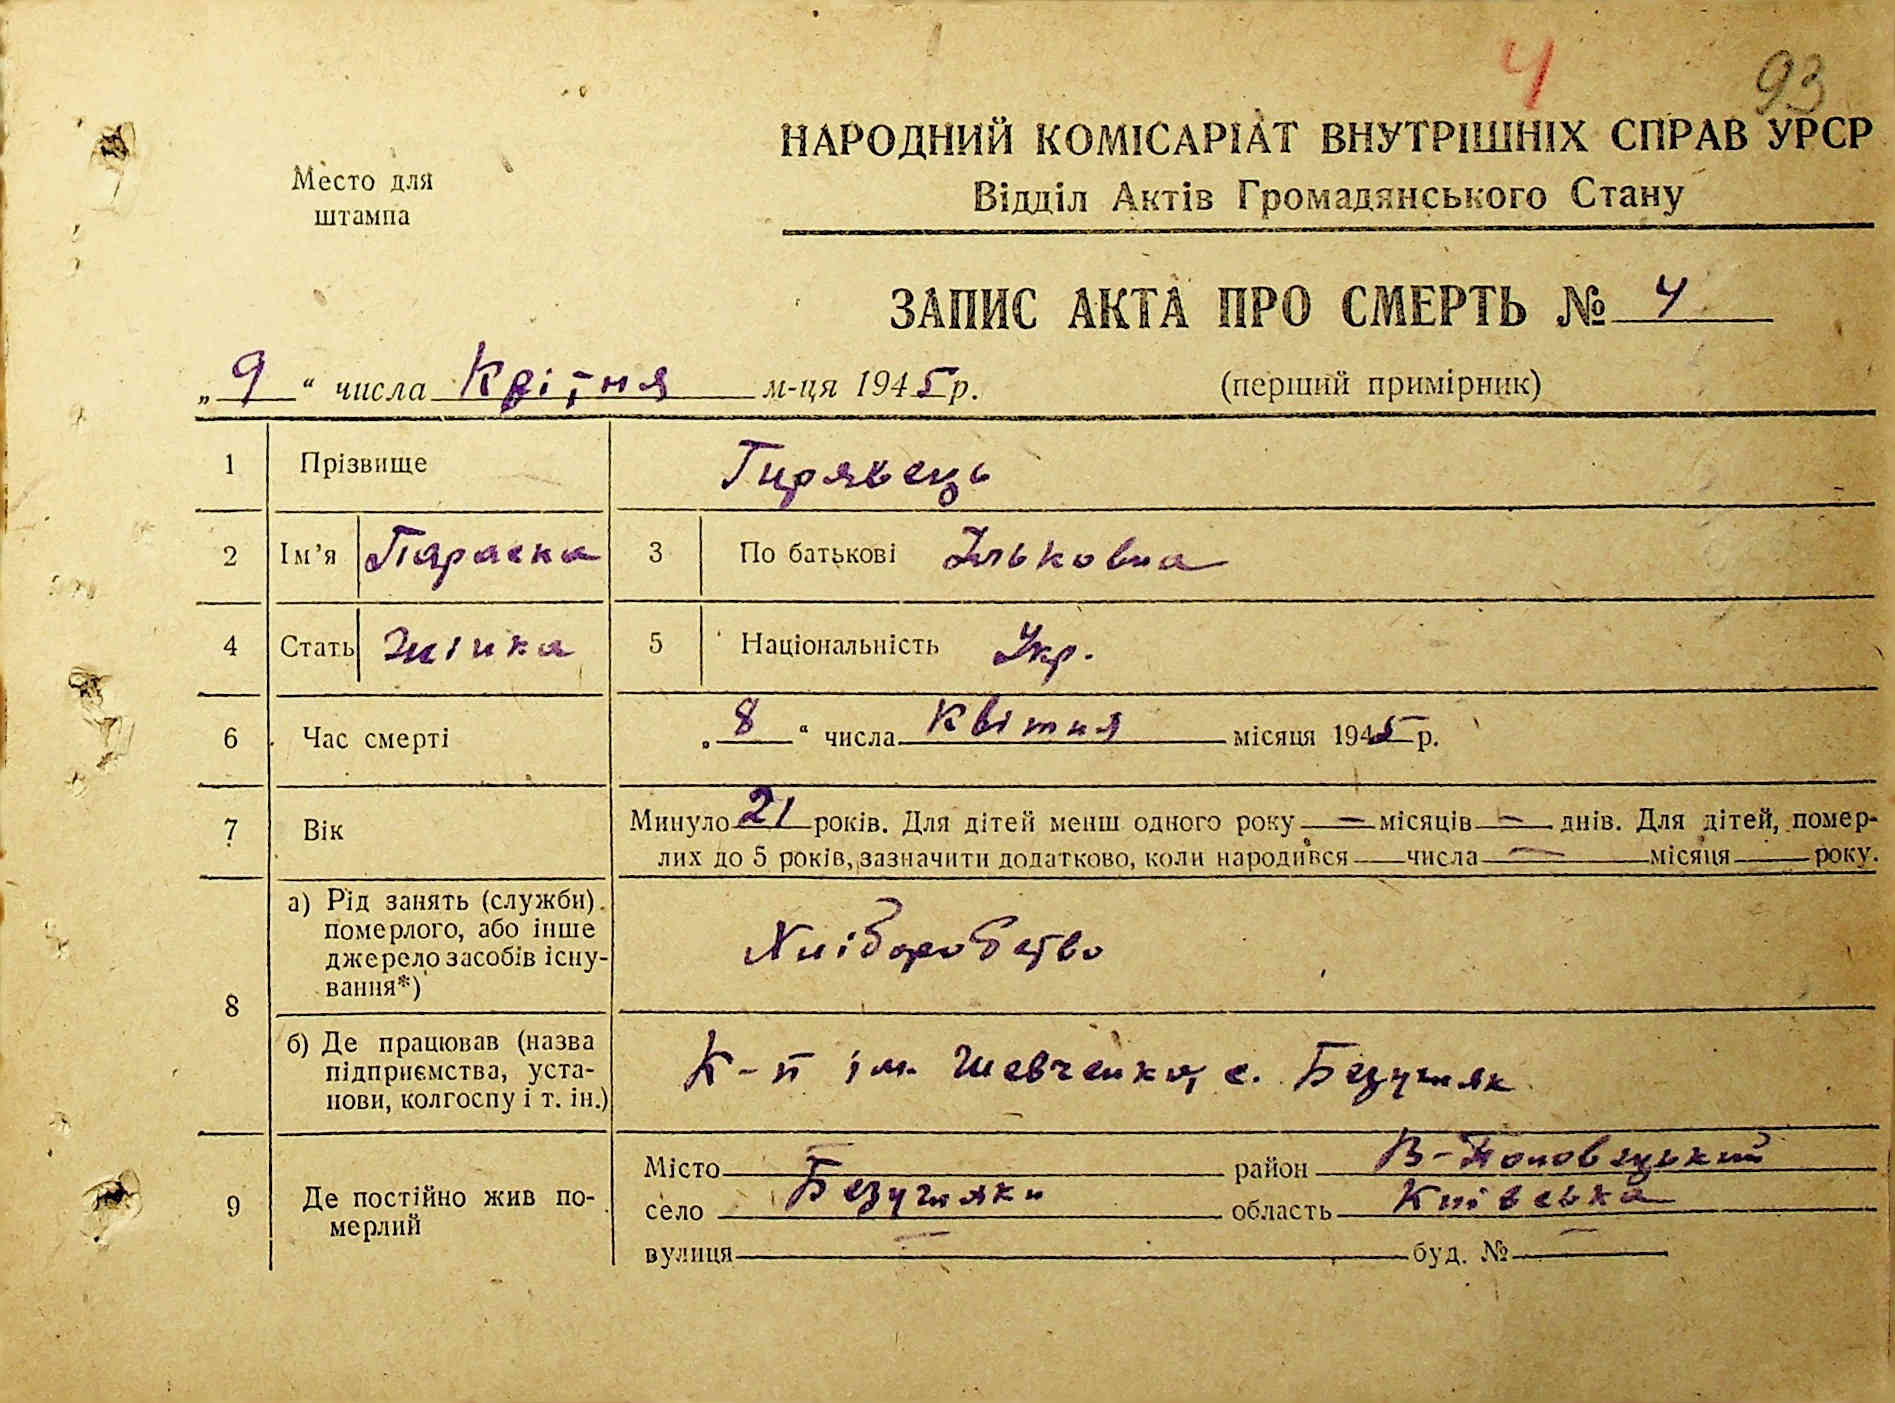 4 93
НАРОДНИЙ КОМІСАРІАТ ВНУТРІШНІХ СПРАВ УРСР
Место для штампа
Відділ Актів Громадянського Стану
ЗАПИС АКТА ПРО СМЕРТЬ № 4
„ 9 “ числа Квітня м-ця 1945 р. (перший примірник)
1 Прізвище Гирявець
2 Ім’я Параска 3 По батькові Ільковна
4 Стать Жінка 5 Національність Укр.
6 Час смерті „ 8 “ числа Квітня місяця 1945 р.
7 Вік Минуло 21 років. Для дітей менш одного року — місяців — днів. Для дітей, помер-
лих до 5 років, зазначити додатково, коли народився числа — місяця року.
8 а) Рід занять (служби)
померлого, або інше
джерело засобів існу-
вання*)
Хліборобство
б) Де працював (назва
підприємства, уста-
нови, колгоспу і т. ін.)
К-п ім. Шевченка, с. Безугляк
9 Де постійно жив по-
мерлий
Місто — район В-Половецький
село Безугляки область Київська
вулиця — буд. № —